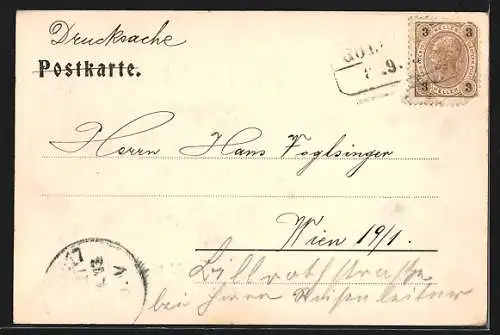 Drucksache
Postkarte.
3 3
HELLER
3 3
9.
Herrn Hans Foglsinger
Wien 19/1.
Billrothstraße
bei Herrn